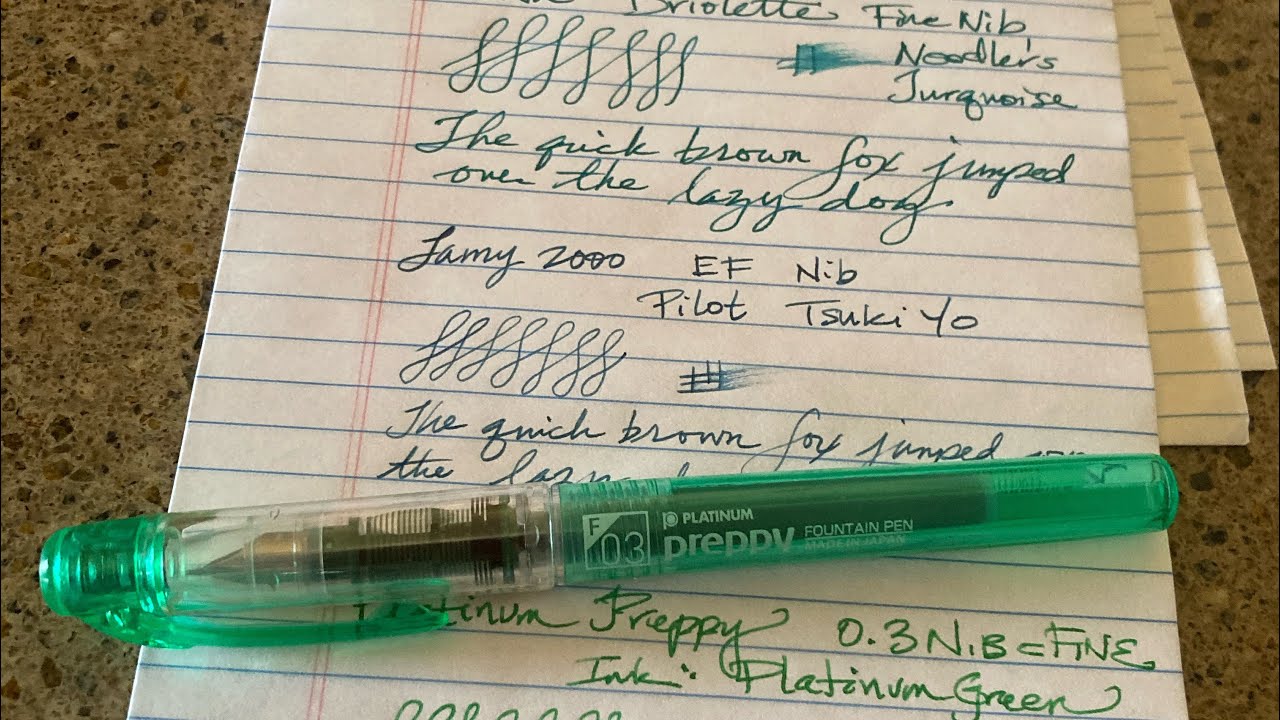 Briolette Fine Nib
Noodler's
Turquoise
The quick brown fox jumped
over the lazy dog.
Lamy 2000 EF Nib
Pilot Tsuki Yo
The quick brown fox jumped
the
F
03
PLATINUM
preppy FOUNTAIN PEN
MADE IN JAPAN
Platinum Preppy 0.3 NiB = FINE
Ink: Platinum Green